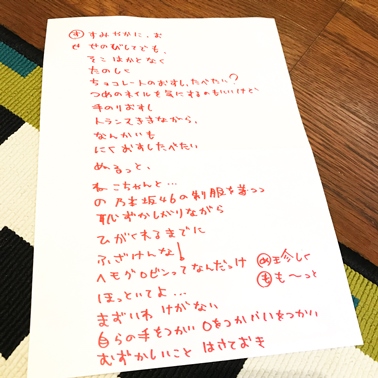 す みやかに、お
せ せのびしてでも、
そこはかとなく
たのしく
ちょコレートのおすし、たべたい?
つめのネイルを気にするのもいいけど
手のりおすし
なんかいも
おすしたべたい
ぬるっと、
ねこちゃんと…
の 乃木坂46の制服を着つつ
恥ずかしがりながら
ひがくれるまでに
ふざけんな!
ヘモグロビンってなんだっけ
ほっといてよ…
まずいわけがない
自らの手をつかい 口をつかい
むずかしいこと はさておき
め 珍しく
も も〜っと